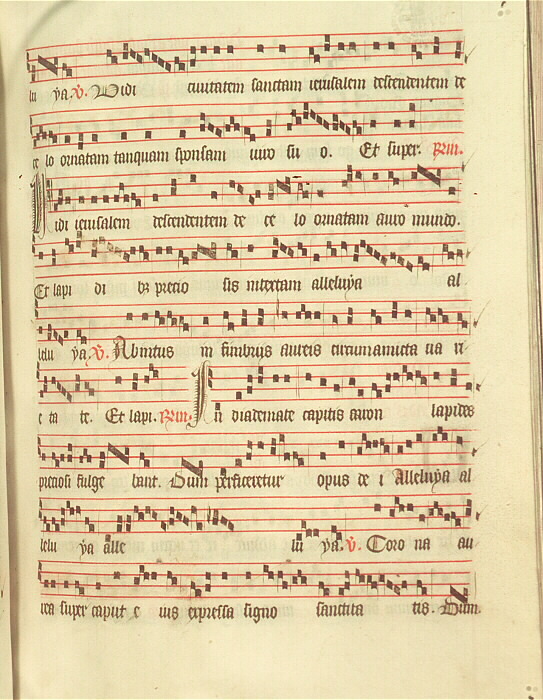 lu ya. V. Vidi ciuitatem sanctam ierusalem descendentem de
ce lo ornatam tanquam sponsam uiro su o. Et super.
Vidi ierusalem descendentem de ce lo ornatam auro mundo.
Et lapi di bz precio sis intextam alleluya al
lelu ya. V. Ab intus in fimbriis aureis circumamicta ua ri
e ta te. Et lapi. In diademate capitis aaron lapides
preciosi fulge bant. Dum perficeretur opus de i Alleluya al
lelu ya alle lu ya. V. Coro na au
rea super caput e ius expressa signo sanctita tis. Dum.